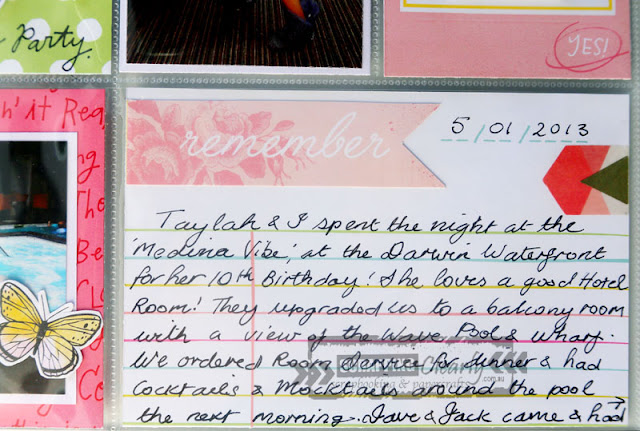 Party.
YES!
h' it Rea
remember
5/01/2013
ng
Tho
Be
Taylah & I spent the night at the
'Medina Vibe', at the Darwin Waterfront
for her 10th Birthday! She loves a good Hotel
Room! They upgraded us to a balcony room
with a view of the Wave Pool & Wharf.
We ordered Room Service for dinner & had
Cocktails & Mocktails around the pool
the next morning... Dave & Jack came & had
Charly
scrapbooking & papercrafts
.com.au